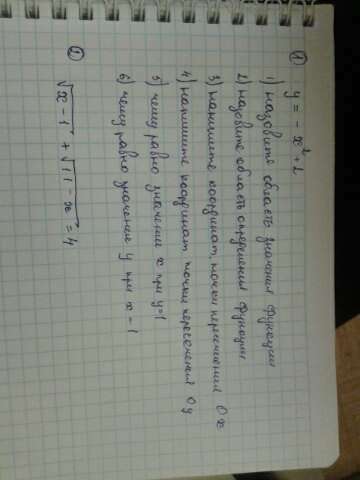 1) y = - x² + 2
1) назовите область значения функции
2) назовите область определения функции
3) напишите координат. точки пересечения Ox
4) напишите координат. точки пересечения Oy
5) чему равно значение x при y=1
6) чему равно значение y при x - 1
2) √x - 1 + √11 - x = 4